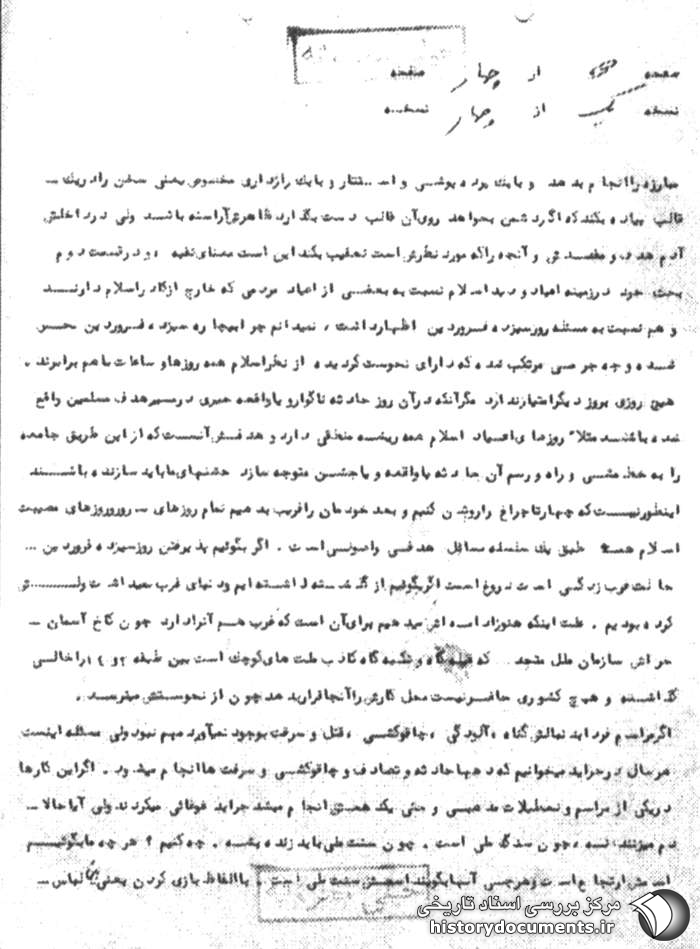 صفحه از چهار صفحه
نسخه یک از چهار نسخه
مبارزه را انجام بدهد و با یک پرده پوشی و استتار و با یک رازداری مخصوص یعنی سخن را در یک ـ
قالب پیاده بکند که اگر دشمن بخواهد روی آن قالب دست بگذارد ظاهرش آراسته باشد ولی در داخلش
آدم هدف و مقصدش و آنچه را که مورد نظرش است تعقیب بکند این است معنای تقیه ، و در قسمت دوم
بحث خود در زمینه اعیاد و دید اسلام نسبت به بعضی از اعیاد مردمی که خارج از کادر اسلام دارند
و هم نسبت به مسئله روز سیزده فروردین اظهار داشت ، نمیدانم چرا بیچاره سیزده فروردین نحس
شده و چه جرمی مرتکب شده که دارای نحوست گردیده از نظر اسلام همه روزها و ساعات با هم برابرند .
هیچ روزی بروز دیگر امتیاز ندارد مگر آنکه در آن روز حادثه ناگوار و یا واقعه خیری در مسیر هدف مسلمین واقع
شده باشد مثلا" روزهای اعیاد اسلام همه ریشه منطقی دارد و هدفش آنست که از این طریق جامعه
را به خط مشی و راه و رسم آن حادثه یا واقعه و یا جشن متوجه سازد جشنهای ما باید سازنده باشند
اینطور نیست که چهار تا چراغ را روشن کنیم و بعد خودمان را فریب بدهیم تمام روزهای سرور و روزهای مصیبت
اسلام همه طبق یک سلسله مسائل هدفی و اصولی است . اگر بگوئیم پذیرفتن روز سیزده فروردین ...
حالت غرب زدگی است دروغ است اگر بگوئیم از گذشته داشته ایم و دنیای غرب
کرده بودیم . علت اینکه هنوز ادامه اش میدهیم برای آن است که غرب هم آنرا دارد چون کاخ آسمان ـ
خراش سازمان ملل متحد که قبله گاه و تکیه گاه کاذب ملت های کوچک است بین طبقه ۱۲ و ۱۴ را خالی
گذاشته و هیچ کشوری حاضر نیست محل کارش را آنجا قرار بدهد چون از نحوستش میترسد .
اگر مراسم فردا بدنبالش گناه ، آلودگی ، چاقوکشی ، قتل و سرقت بوجود نمیآورد مهم نبود ولی مسئله اینست
هر سال در جراید میخوانیم که دهها حادثه و تصادف و چاقوکشی و سرقت ها انجام میشود . اگر این کارها
در یکی از مراسم و تعطیلات مذهبی و حتی یک همش انجام میشد جراید غوغائی میکردند ولی آیا حالا ـ
دم میزنند ، نه ، چون سنت ملی است . چون سنت ملی باید زنده بشه . چه کنیم ؟ هر چه ما بگوئیم
اسمش ارتجاع است و هر چی آنها بگویند اسمش سنت ملی است . با الفاظ بازی کردن یعنی لباس ـ
مرکز بررسی اسناد تاریخی
historydocuments.ir